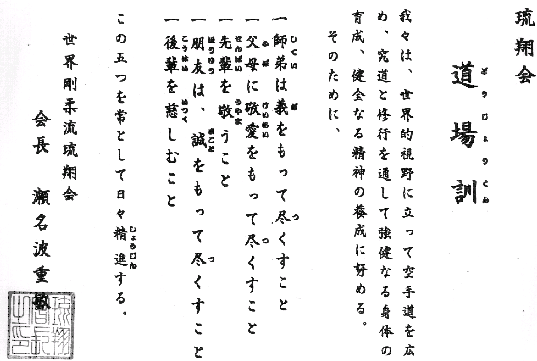 琉翔会
道場訓
どうじょうくん
我々は、世界的視野に立って空手道を広
め、究道と修行を通して強健なる身体の
育成、健全なる精神の養成に努める。
そのために、
一師弟は義をもって尽くすこと
一父母に敬愛をもって尽くすこと
一先輩を敬うこと
一朋友は、誠をもって尽くすこと
一後輩を慈しむこと
この五つを常として日々精進する。
しょうじん
世界剛柔流琉翔会
会長 瀬名波重敏